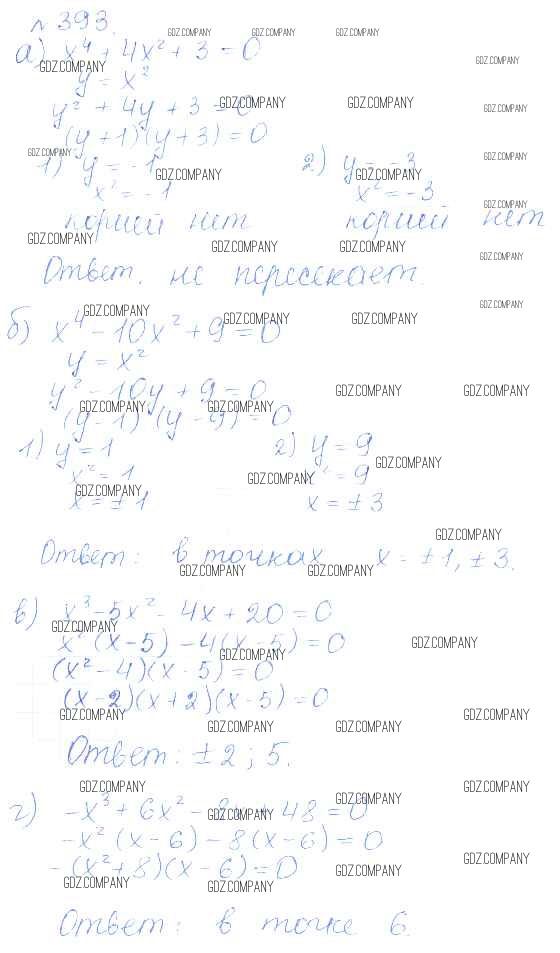 № 393.
а) x⁴ + 4x² + 3 = 0
y = x²
y² + 4y + 3 = 0
(y + 1)(y + 3) = 0
1) y = -1
x² = -1
корней нет
2) y = -3
x² = -3
корней нет
Ответ. не пересекает.
б) x⁴ - 10x² + 9 = 0
y = x²
y² - 10y + 9 = 0
(y - 1)(y - 9) = 0
1) y = 1
x² = 1
x = ± 1
2) y = 9
x² = 9
x = ± 3
Ответ: в точках x = ± 1, ± 3.
в) x³ - 5x² - 4x + 20 = 0
x² (x - 5) - 4(x - 5) = 0
(x² - 4)(x - 5) = 0
(x - 2)(x + 2)(x - 5) = 0
Ответ: ± 2 ; 5.
г) -x³ + 6x² - 8x + 48 = 0
-x² (x - 6) - 8(x - 6) = 0
-(x² + 8)(x - 6) = 0
Ответ: в точке 6.
GDZ.COMPANY